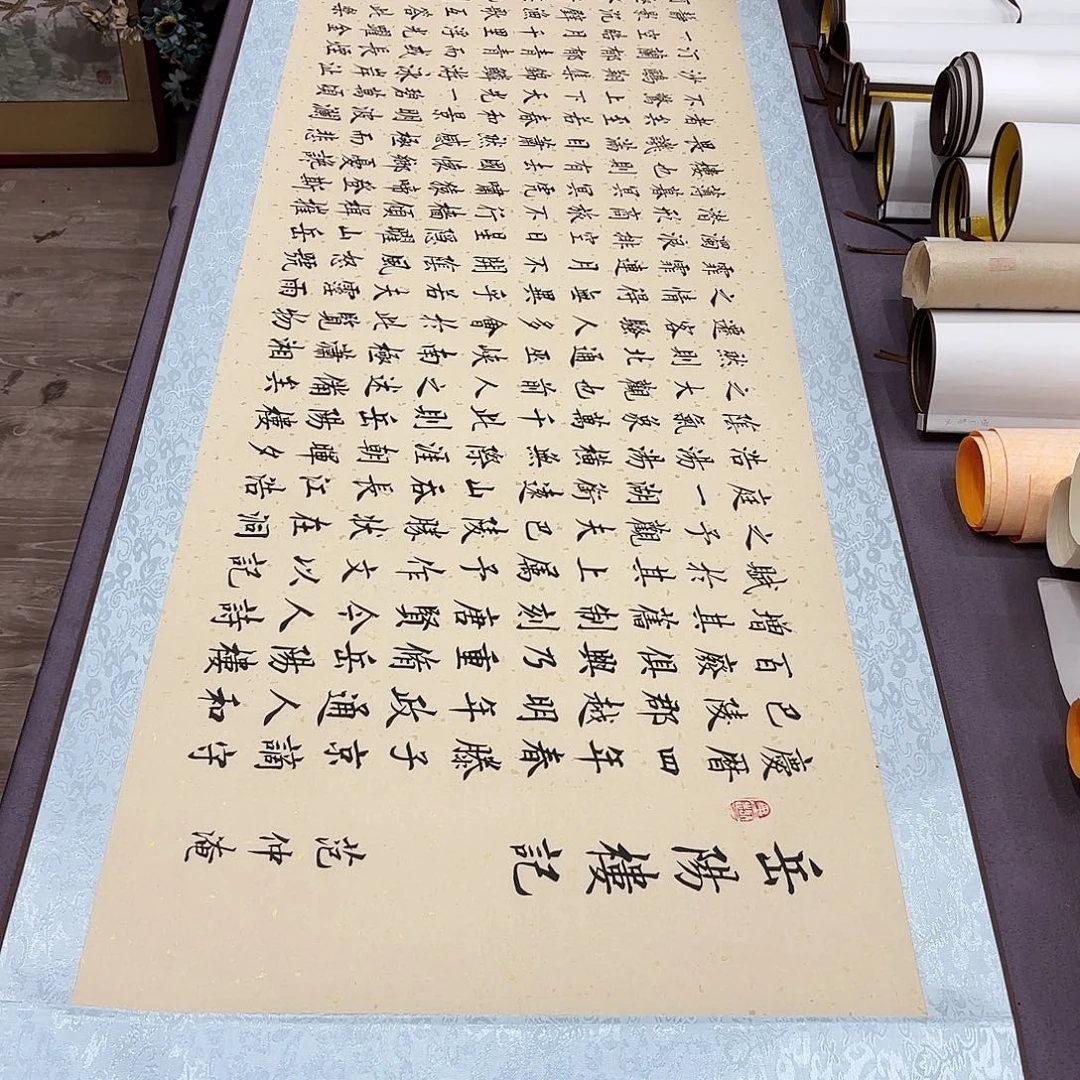 岳陽樓記
范仲淹
慶曆四年春滕子京謫守
巴陵郡越明年政通人和
百廢俱興乃重脩岳陽樓
增其舊制刻唐賢今人詩
賦於其上屬予作文以記
之予觀夫巴陵勝狀在洞
庭一湖銜遠山吞長江浩
浩湯湯橫無際涯朝暉夕
陰氣象萬千此則岳陽樓
之大觀也前人之述備矣
然則北通巫峽南極瀟湘
遷客騷人多會於此覽物
之情得無異乎若夫霪雨
霏霏連月不開陰風怒號
濁浪排空日星隱曜山岳
潛形商旅不行檣傾楫摧
薄暮冥冥虎嘯猿啼登斯
樓也則有去國懷鄉憂讒
畏譏滿目蕭然感極而悲
者矣至若春和景明波瀾
不驚上下天光一碧萬頃
沙鷗翔集錦鱗游泳岸芷
汀蘭郁郁青青而或長煙
一空皓月千里浮光躍金
靜影沉璧漁歌互答此樂